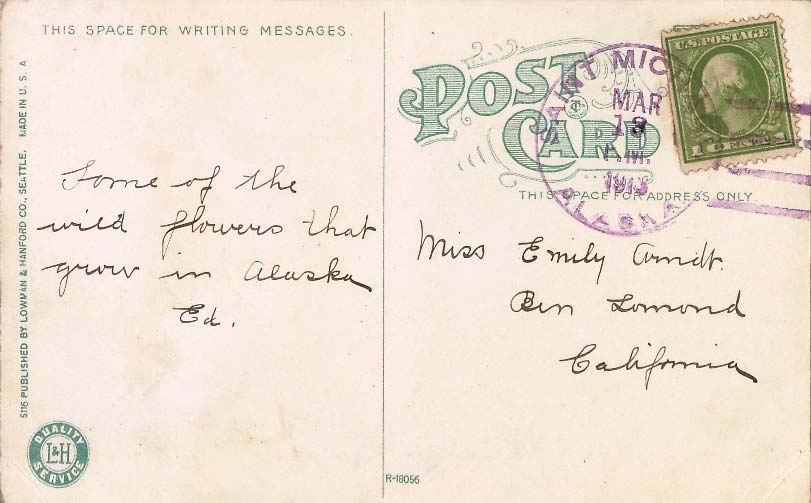 THIS SPACE FOR WRITING MESSAGES.
POST CARD
THIS SPACE FOR ADDRESS ONLY.
SAINT MICH
MAR
13
A.M.
1913
ALASKA
U.S. POSTAGE
1 CENT 1
Some of the
wild flowers that
grow in Alaska
Ed.
Miss Emily Arndt.
Ben Lomond
California
5116 PUBLISHED BY LOWMAN & HANFORD CO., SEATTLE. MADE IN U. S. A
QUALITY
L&H
SERVICE
R-18056